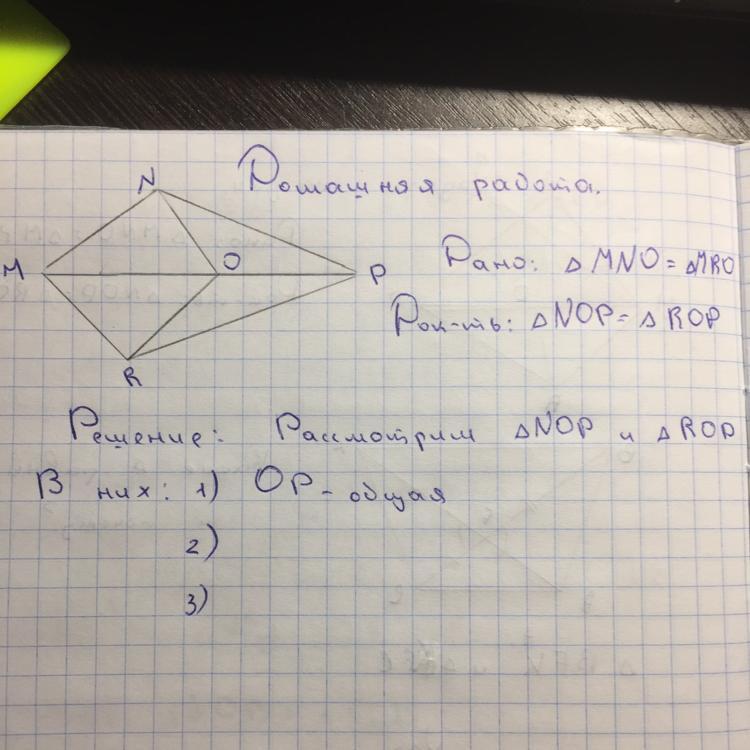 Домашняя работа.
N
M
O
P
R
Дано: △MNO = △MRO
Док-ть: △NOP = △ROP
Решение: Рассмотрим △NOP и △ROP
В них: 1) OP - общая
2)
3)